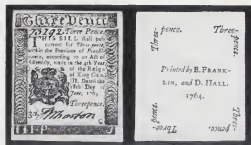 Three Pence.
Three Pence.
THIS BILL shall pass
current for Three pence,
within the Province of
according to an Act of
Assembly, made in the 4th Year
of the Reign
of King
III. Dated the
Day of
Year, 1764
Threepence.
Wharton
Three-
pence.
Three-
pence.
Printed by B. FRANK-
LIN, and D. HALL.
1764.
Three-
pence.
Three-
pence.